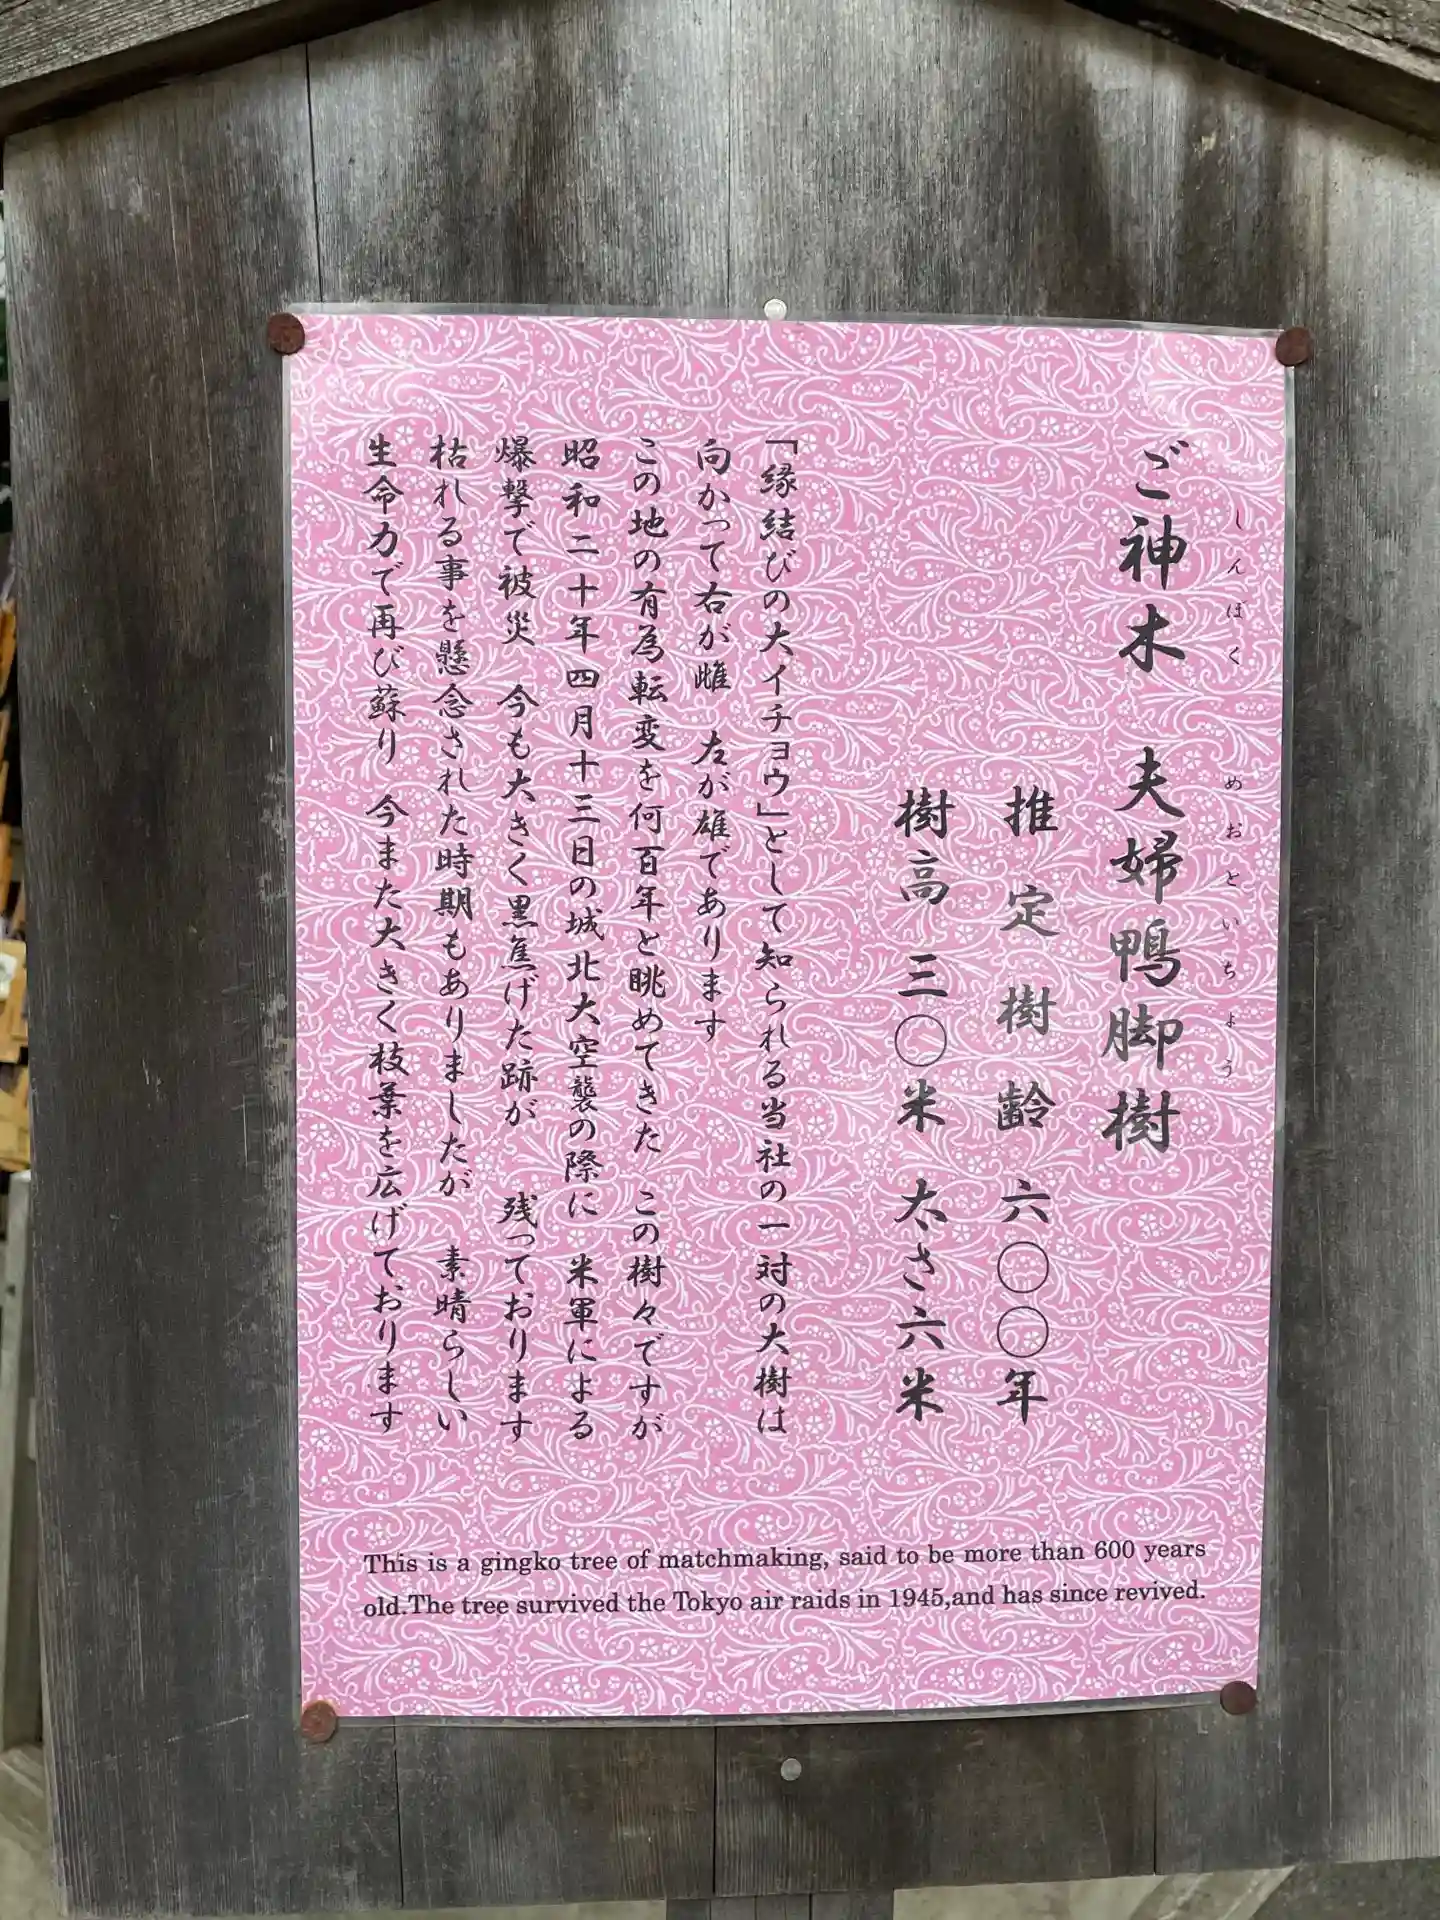 ご神木 夫婦鴨脚樹
しんぼく めおといちょう
推定樹齢 六〇〇年
樹高 三〇米 太さ六米
「縁結びの大イチョウ」として知られる当社の一対の大樹は
向かって右が雌 左が雄であります
この地の有為転変を何百年と眺めてきた この樹々ですが
昭和二十年四月十三日の城北大空襲の際に 米軍による
爆撃で被災 今も大きく黒焦げた跡が 残っております
枯れる事を懸念された時期もありましたが 素晴らしい
生命力で再び蘇り 今また大きく枝葉を広げております
This is a gingko tree of matchmaking, said to be more than 600 years
old.The tree survived the Tokyo air raids in 1945,and has since revived.